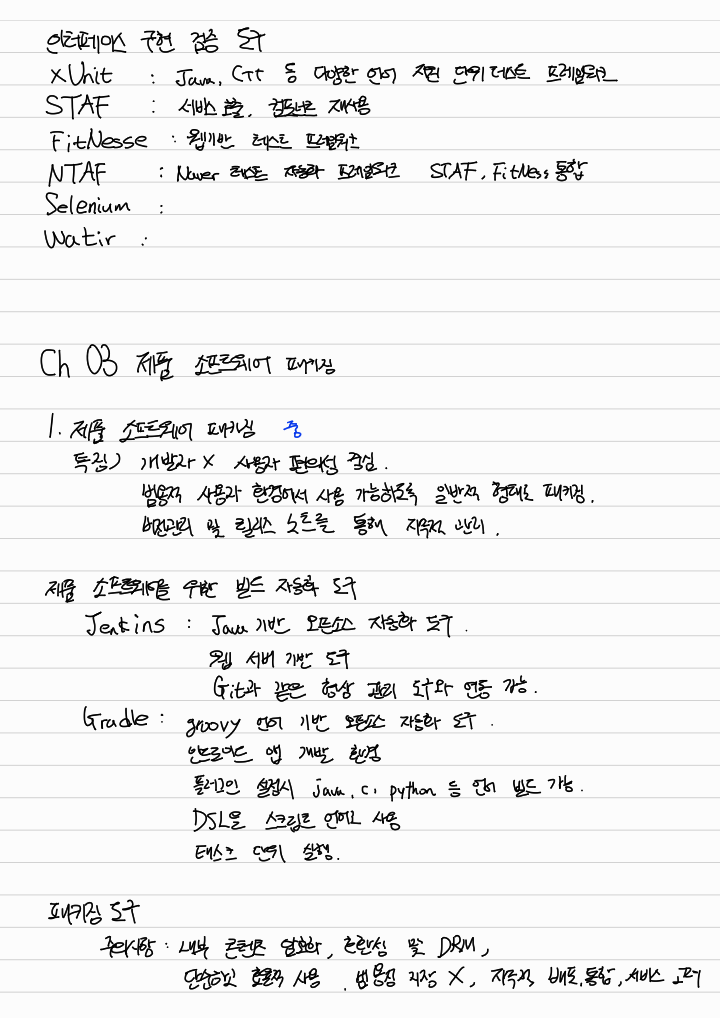 인터페이스 구현 검증 도구
xUnit : Java, C++ 등 다양한 언어 지원 단위 테스트 프레임워크
STAF : 서비스 호출, 컴포넌트 재사용
FitNesse : 웹기반 테스트 프레임워크
NTAF : Naver 테스트 자동화 프레임워크 STAF, FitNess 통합
Selenium :
Watir :
Ch 03 제품 소프트웨어 패키징
1. 제품 소프트웨어 패키징 중
특징) 개발자 X 사용자 편의성 중심.
범용적 사용자 환경에서 사용 가능하도록 일반적 형태로 패키징.
버전관리 및 릴리스 노트를 통해 지속적 관리.
제품 소프트웨어를 위한 빌드 자동화 도구
Jenkins : Java 기반 오픈소스 자동화 도구.
웹 서버 기반 도구
Git과 같은 형상 관리 도구와 연동 가능.
Gradle : groovy 언어 기반 오픈소스 자동화 도구.
안드로이드 앱 개발 환경
플러그인 설정시 java, c, python 등 언어 빌드 가능.
DSL을 스크립트 언어로 사용
태스크 단위 실행.
패키징 도구
주의사항 : 내부 콘텐츠 암호화, 및 DRM,
사용. 범용성 지장 X, 지속적 배포, 통합, 서비스 고려